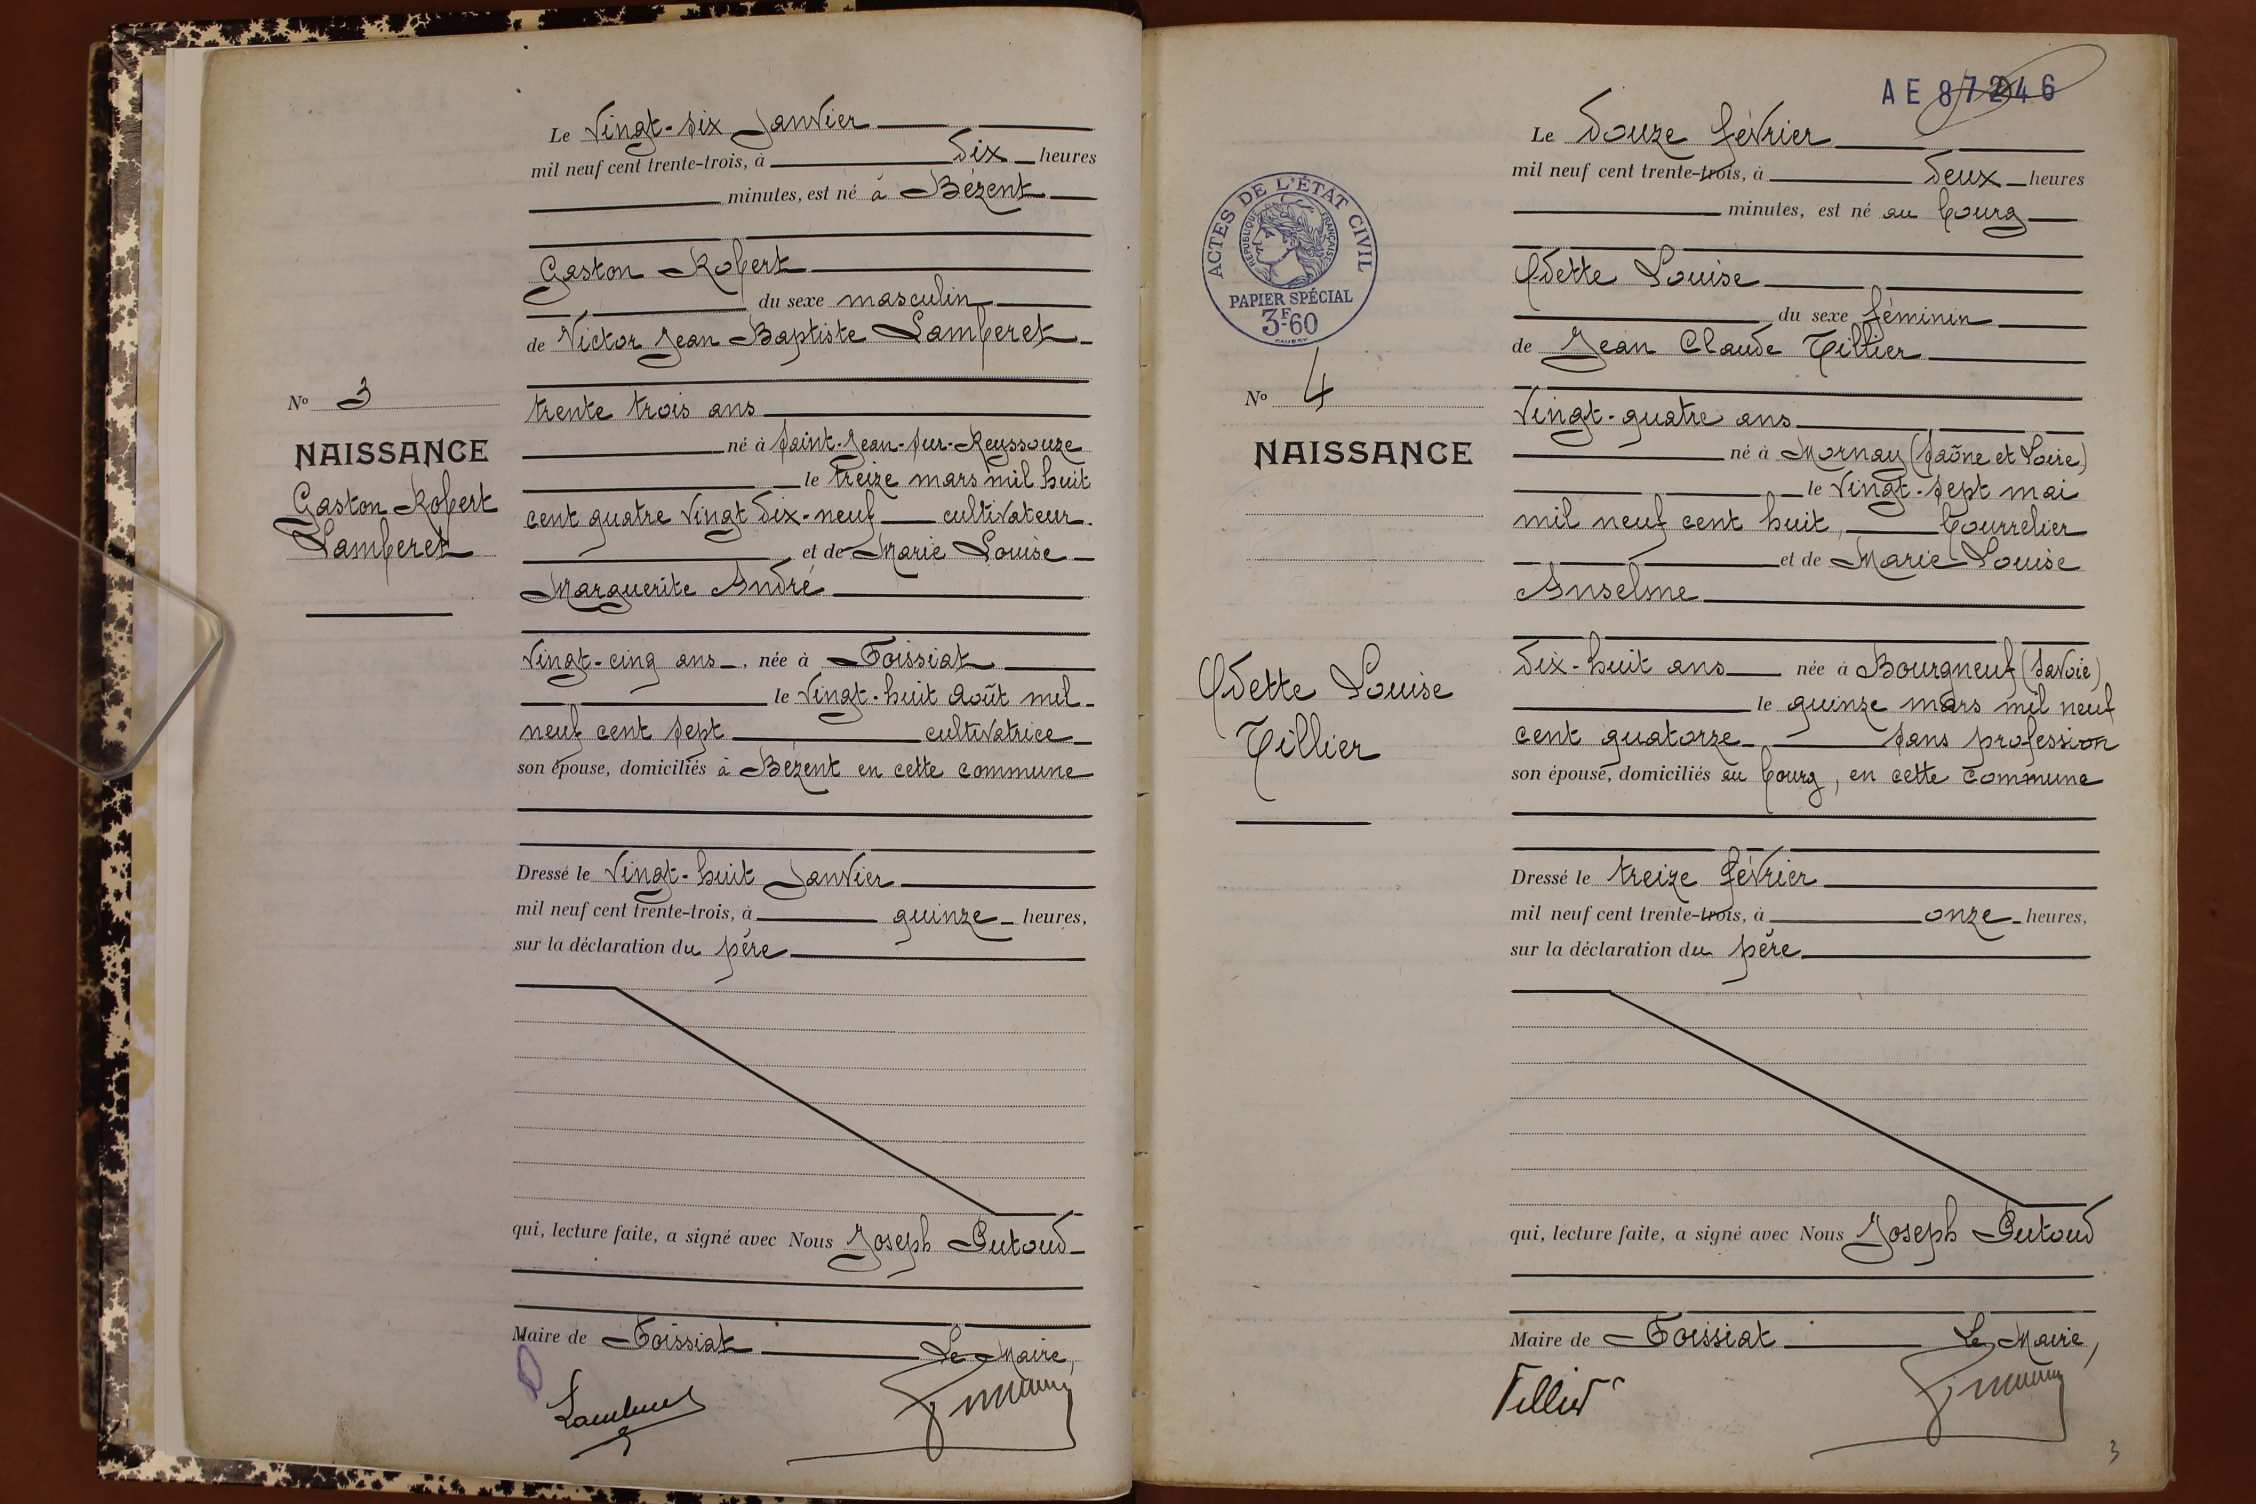 Le Vingt-six Janvier
mil neuf cent trente-trois, à dix heures
minutes, est né à Bézent
Gaston Robert
du sexe masculin
de Victor Jean Baptiste Lamberet
trente trois ans
né à Saint-Jean-sur-Reyssouze
le treize mars mil huit
cent quatre vingt dix-neuf cultivateur
et de Marie Louise
Marguerite André
Vingt-cinq ans, née à Foissiat
le Vingt-huit Août mil
neuf cent sept cultivatrice
son épouse, domiciliés à Bézent en cette commune
Dressé le Vingt-huit Janvier
mil neuf cent trente-trois, à quinze heures,
sur la déclaration du père
qui, lecture faite, a signé avec Nous Joseph Putoud
Maire de Foissiat Le Maire,
Lamberet
No 3
NAISSANCE
Gaston Robert
Lamberet
AE 87246
Le douze février
mil neuf cent trente-trois, à deux heures
minutes, est né au bourg
Odette Louise
du sexe féminin
de Jean Claude Tillier
Vingt-quatre ans
né à Mornay (Saône et Loire)
le Vingt-sept mai
mil neuf cent huit, bourrelier
et de Marie Louise
Anselme
dix-huit ans née à Bourgneuf (Savoie)
le quinze mars mil neuf
cent quatorze sans profession
son épouse, domiciliés au bourg, en cette commune
Dressé le treize février
mil neuf cent trente-trois, à onze heures,
sur la déclaration du père
qui, lecture faite, a signé avec Nous Joseph Putoud
Maire de Foissiat Le Maire,
Tillier
3
ACTES DE L'ÉTAT CIVIL
RÉPUBLIQUE FRANÇAISE
PAPIER SPÉCIAL
3F60
No 4
NAISSANCE
Odette Louise
Tillier